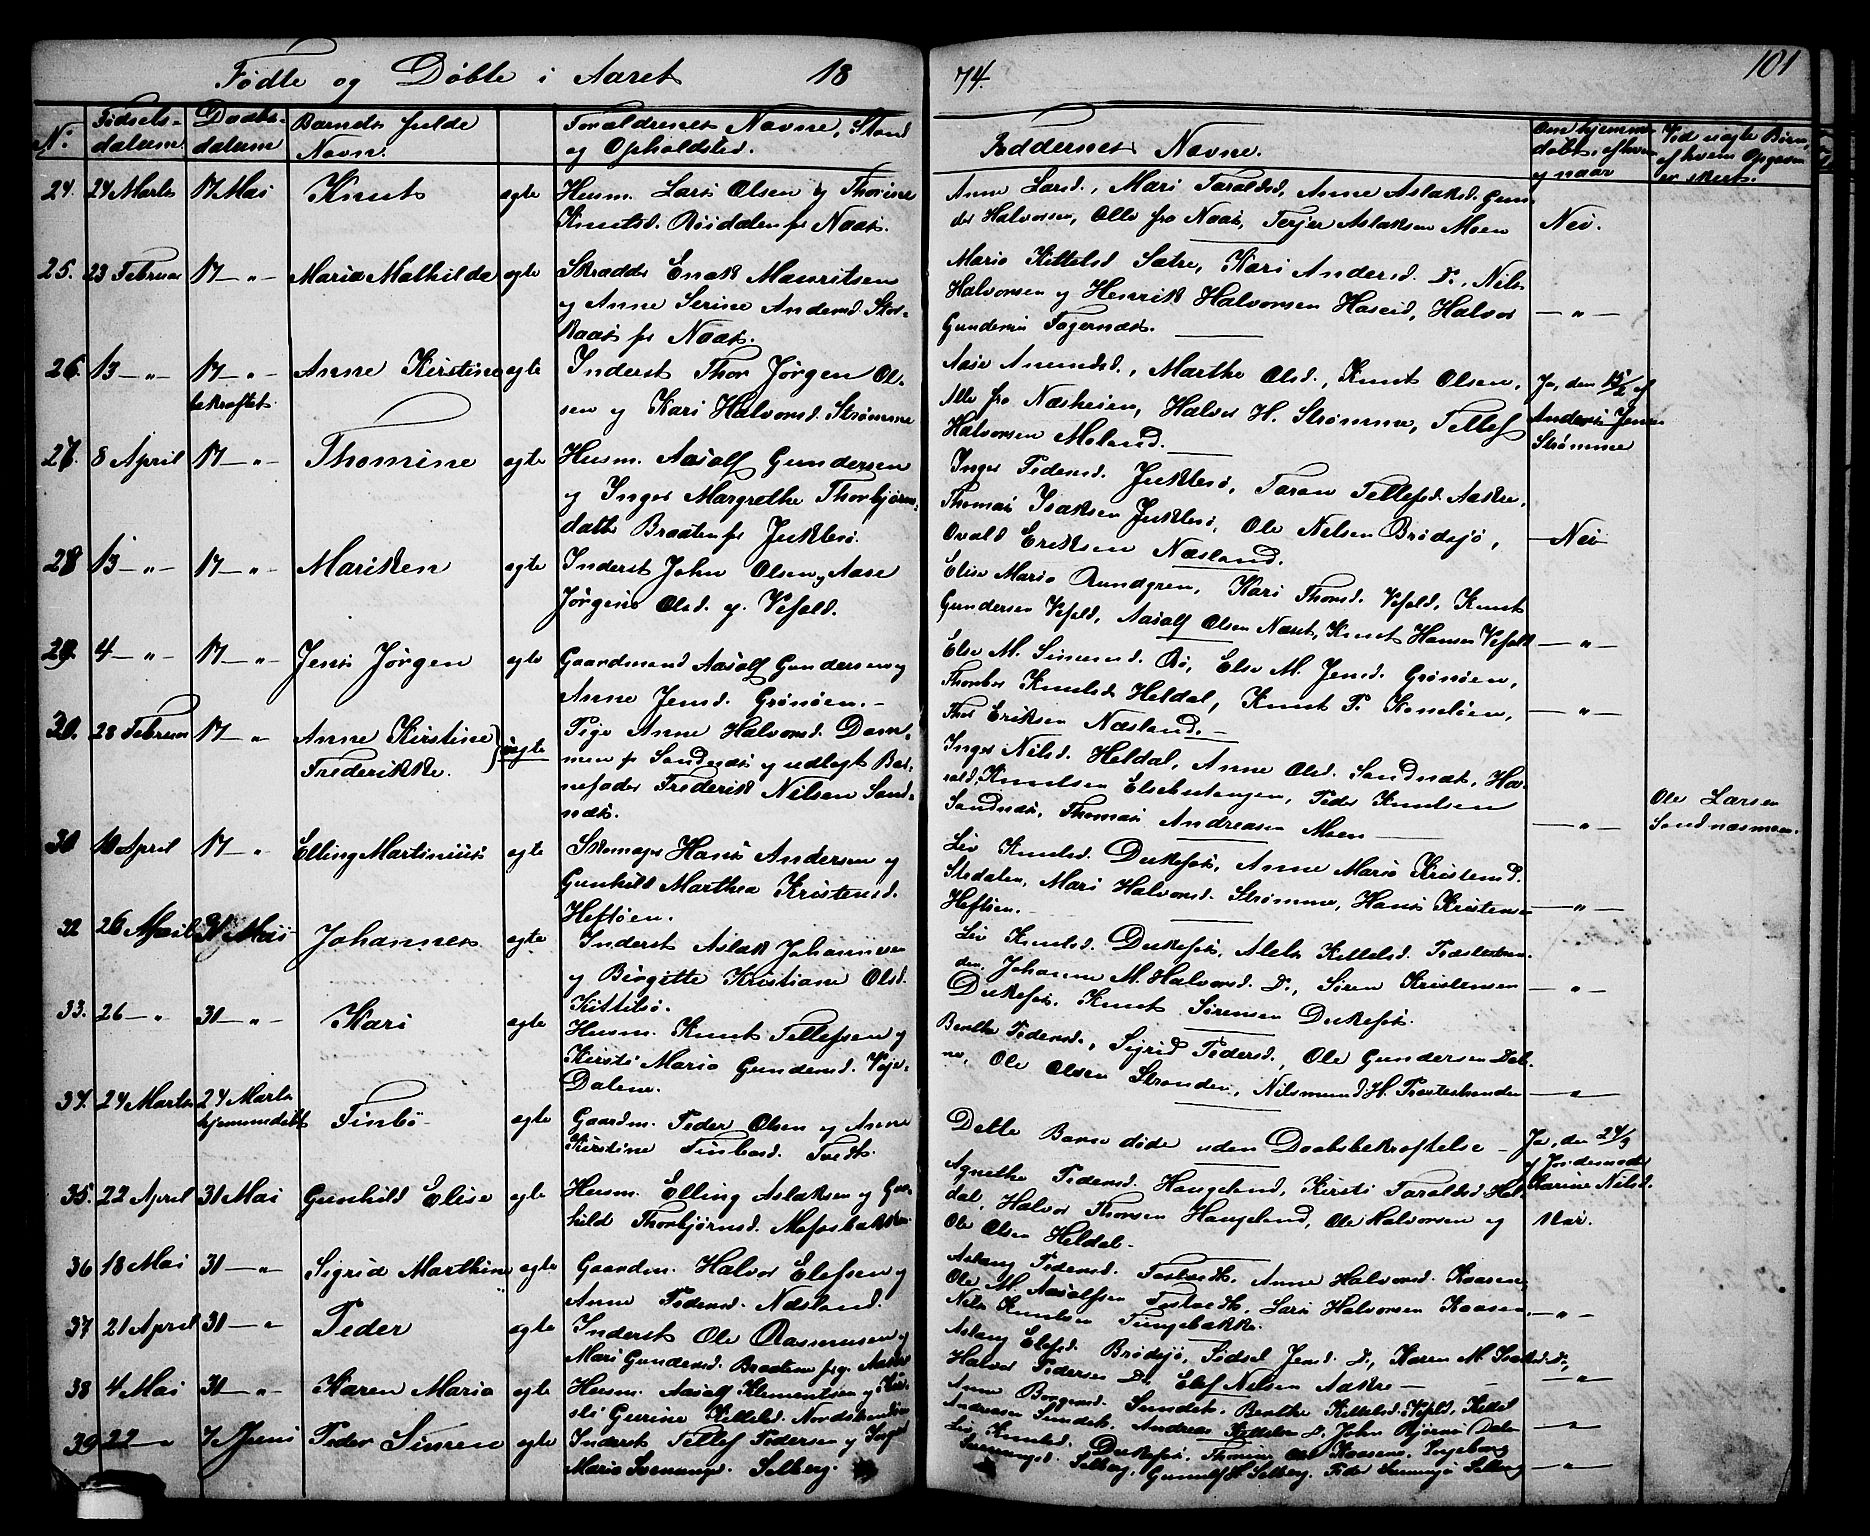 Fødte og Døbte i Aaret 18
74.
101
No
Fødsels-
datum
Daabs-
datum
Barnets fulde
Navn.
Forældrenes Navne, Stand
og Opholdsted.
Faddernes Navne.
Om hjemme
døbt, af hvem
og naar
Ved uægte Børn,
af hvem Opgaven
er skeet.
24. 24 Marts 17 Mai Knut ægte Husm. Lars Olsen og Thorine
Knutsd. Røidalen fr Næs.
Anne Larsd., Mari Taraldsd., Anne Aslaksd. Gun-
der Halvorsen, Alle fra Næs, Terjer Aslaksen Moen Nei.
25. 23 Februar 17 — " — Maria Mathilde ægte Skrædder Enok Mauritsen
og Anne Serine Andersd. Stor-
kaas fr Næs.
Marie Kittelsd Sætre, Kari Andersd. D., Nils
Halvorsen og Henrik Halvorsen Haseid, Halvor
Gundersen Fagernæs. — " —
26. 13 — " — 17 — " — Anne Kirstine ægte Inderst Thor Jørgen Ol-
bekræftet. sen og Kari Halvorsd. Strømme
Aase Amundsd., Marthe Olsd., Knut Olsen,
Alle fra Næsheien, Halvor H. Strømme, Tellef
Halvorsen Moland.
Ja, den 15/2 af
Anders Jensen
Strømme
27. 8 April 17 — " — Thomine ægte Husm. Aasolf Gundersen
og Inger Margrethe Thorbjørns-
datter Braaten fr Juklesø.
Inger Pedersd. Juklesø, Taran Tellefsd. Aakre,
Thomas Isaksen Juklesø, Ole Nilsen Brødsjø,
Ovald Eriksen Næsland. — Nei —
28 13 — " — 17 — " — Mariken ægte Inderst John Olsen og Aase
Jørgine Olsd. og Vefald.
Elise Marie Rundgren, Kari Thorsd. Vefald, Knut
Gundersen Vefald, Aasolf Olsen Næset, Knut Hansen Vefald — " —
29. 4 — " — 17 — " — Jens Jørgen ægte Gaardmand Aasolf Gundersen og
Anne Jensd. Grønøen. —
Else M. Simensd. Bø, Else M. Jensd. Grønøen,
Thorbor Knutsd. Heldal, Knut P. Kamløen,
Thor Eriksen Næsland. — — " —
30. 28 Februar 17 — " — Anne Kirstine
Frederikke. uægte
Pige Anne Halvorsd. Dam-
men fr Sandnæs og udlagt Bar-
nefader Frederik Nilsen Sand-
næs.
Inger Nilsd. Heldal, Anne Olsd. Sandnæs, Ha-
rald Knutsen Elsebutangen, Peder Knutsen
Sandnæs, Thomas Andreasen Moen — " —
Ole Larsen
Sandnæsmoen.
31 10 April 17 — " Elling Martinius ægte Skomager Hans Andersen og
Gunhild Marthea Kristensd.
Heftøen.
Liv Knutsd. Dukefos, Anne Marie Kristensd.
Stedalen, Mari Halvorsd. Strømme, Hans Kristensen
Heftøen. — " —
32 26 April 31 Mai Johannes ægte Inderst Aslak Johannesen
og Birgitte Kristiane Olsd.
Kittilsø.
Liv Knutsd. Dukefos, Alet Kittelsd. Træstestran-
den, Johanne M. Halvorsd. D., Søren Kristensen
Dukefos, Knut Sørensen Dukefos. — " —
33. 26 — " 31 — " — Kari ægte Husm. Knut Tellefsen og
Kirsti Marie Gundersd. Veje-
Dalene.
Berthe Pedersd., Sigrid Pedersd., Ole Gundersen Dal-
ne, Ole Olsen Stranden, Nilsmund H. Træstestranden — " —
34. 24 Marts 24 Marts Tinbø ægte Gaardm. Peder Olsen og Anne
hjemmedøbt Kirstine Tinbosd. Tvedt.
Dette Barn døde uden Daabsbekræftelse —
Ja, den 24/3
af Jordemoder
Karine Nilsd.
35. 22 April 31 Mai Gunhild Elise ægte Husm. Elling Aslaksen og Gun-
hild Thorbjørnsd. Mofosbakken.
Agnethe Pedersd. Haugeland, Kirsti Taraldsd. Hel-
dal, Halvor Thorsen Haugeland, Ole Halvorsen og
Ole Olsen Heldal. Nei.
36 18 Mai 31 — " — Sigrid Marthine ægte Gaardm. Halvor Elefsen og
Anne Pedersd. Næsland.
Aslaug Pedersd. Fostvedt, Anne Halvorsd. Kaasen,
Ole M. Aasolfsen Fostvedt, Lars Halvorsen Kaasen,
Nils Knutsen Tungebakke. — " —
37 21 April 31 — " Peder ægte Inderst Ole Rasmussen og
Mari Gundersd. Braaten fr Aakre
Aslaug Elefsd. Brødsjø, Sidsel Jensd. D., Karen M. Isaksd. D.,
Halvor Pedersen D., Elef Nilsen Aakre — — " —
38 4 Mai 31 — " — Karen Marie ægte Husm. Aasolf Klementsen og Kir-
sti Gurine Kittelsd. Nordstranden
Anne Boggesd. Sundet, Berthe Kittelsd. Vefald, Kittel
Andreasen Sundet, Andreas Kittelsen D., John Bjørnsen Dale — " —
39 22 — " 7 Juni Peder Simen ægte Inderst Tellef Pedersen og Inger
Marie Svenungsd. Solberg.
Liv Knutsd. Dukefos, Thorine Olsd. Kaasene, Ingeborg
Svenungsd. Solberg, Gunulf H. Solberg, Peder Svenungsen Solberg — " —